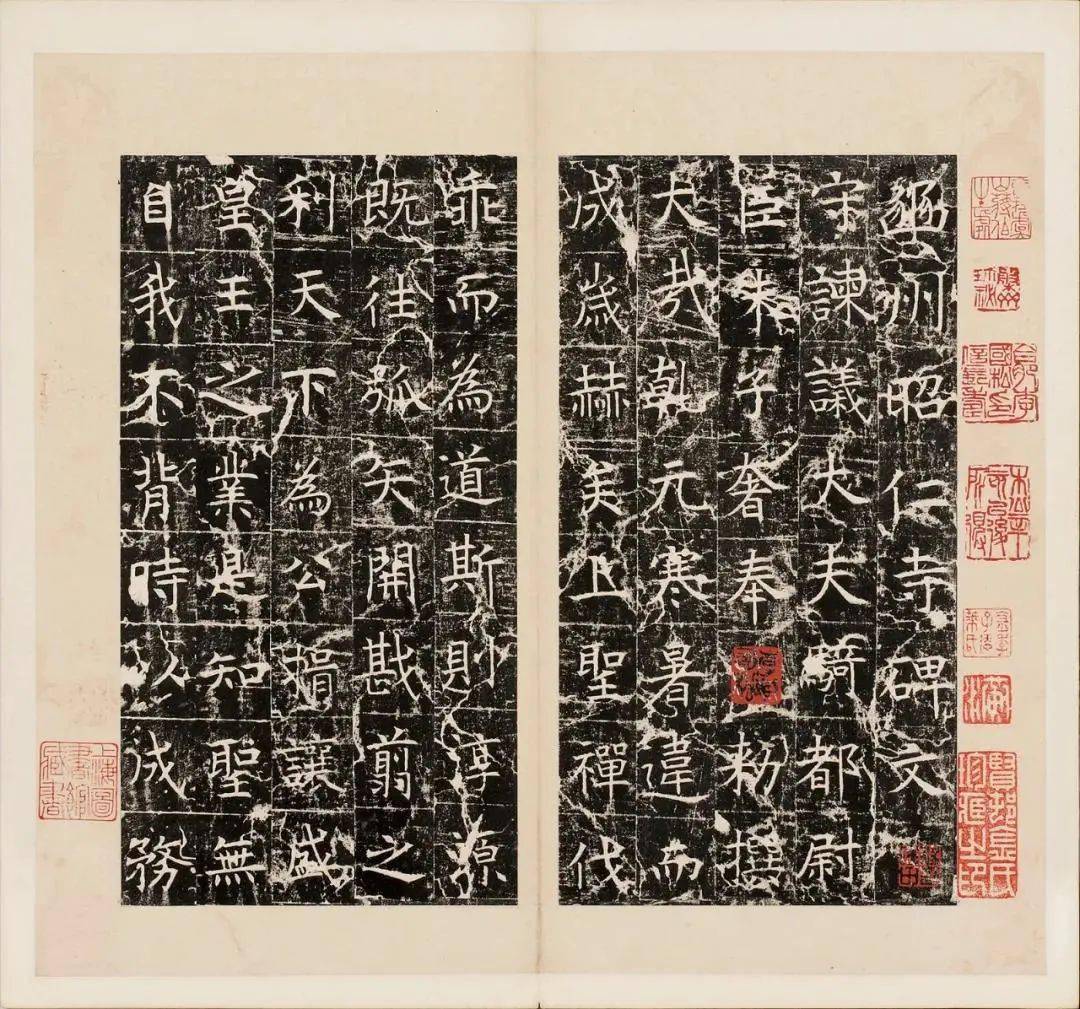 豳州昭仁寺碑文
守諫議大夫騎都尉
臣朱子奢奉敕撰
大哉乾元寒暑違而
成歲赫矣上聖禪伐
乖而為道斯則淳源
既往弧矢開戡翦之
利天下為公揖讓盛
皇王之業是知聖無
自我不背時以成務
上海圖書館藏書